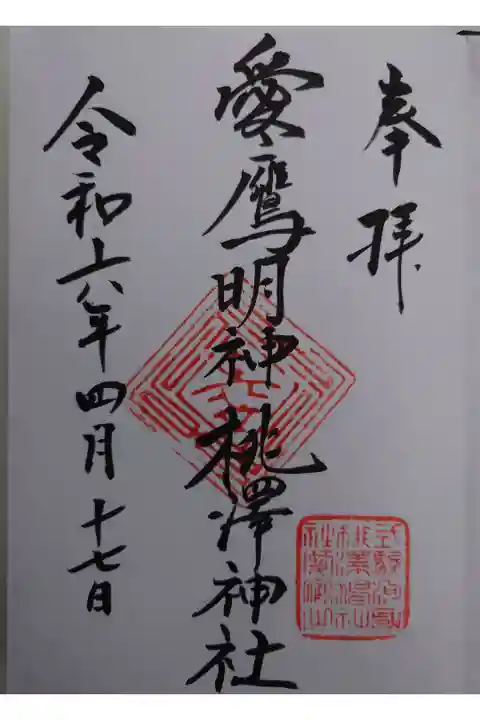 奉拝
愛鷹明神桃澤神社
令和六年四月十七日